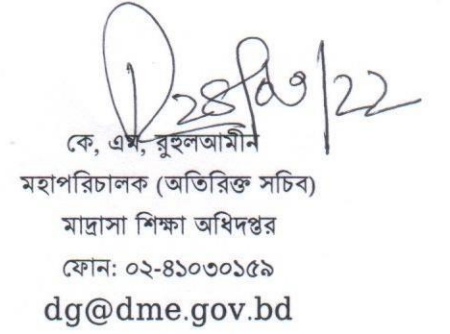 28/03/22
কে, এম, রুহুলআমীন
মহাপরিচালক (অতিরিক্ত সচিব)
মাদ্রাসা শিক্ষা অধিদপ্তর
ফোন: ০২-৪১০৩০১৫৯
dg@dme.gov.bd